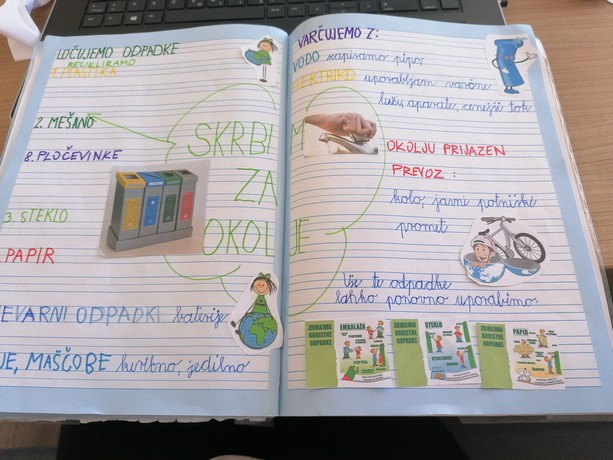 LOČUJEMO ODPADKE
RECIKLIRAMO
1. PLASTIKA
2. MEŠANO
8. PLOČEVINKE
3. STEKLO
PAPIR
EVARNI ODPADKI baterije
JE, MAŠČOBE kurilno, jedilno
SKRBI M
ZA
OKOL JE
VARČUJEMO Z:
VODO zapiramo pipo,
ELEKTRIKO uporabljam varčne
luči, aparate, cenejši tok
OKOLJU PRIJAZEN
PREVOZ :
kolo, javni potniški
promet
Vse te odpadke
lahko ponovno uporabimo.
ZBIRAJMO
KORISTNE
ODPADKE
EMBALAŽA
ZBIRAJMO
KORISTNE
ODPADKE
STEKLO
ZBIRAJMO
KORISTNE
ODPADKE
PAPIR